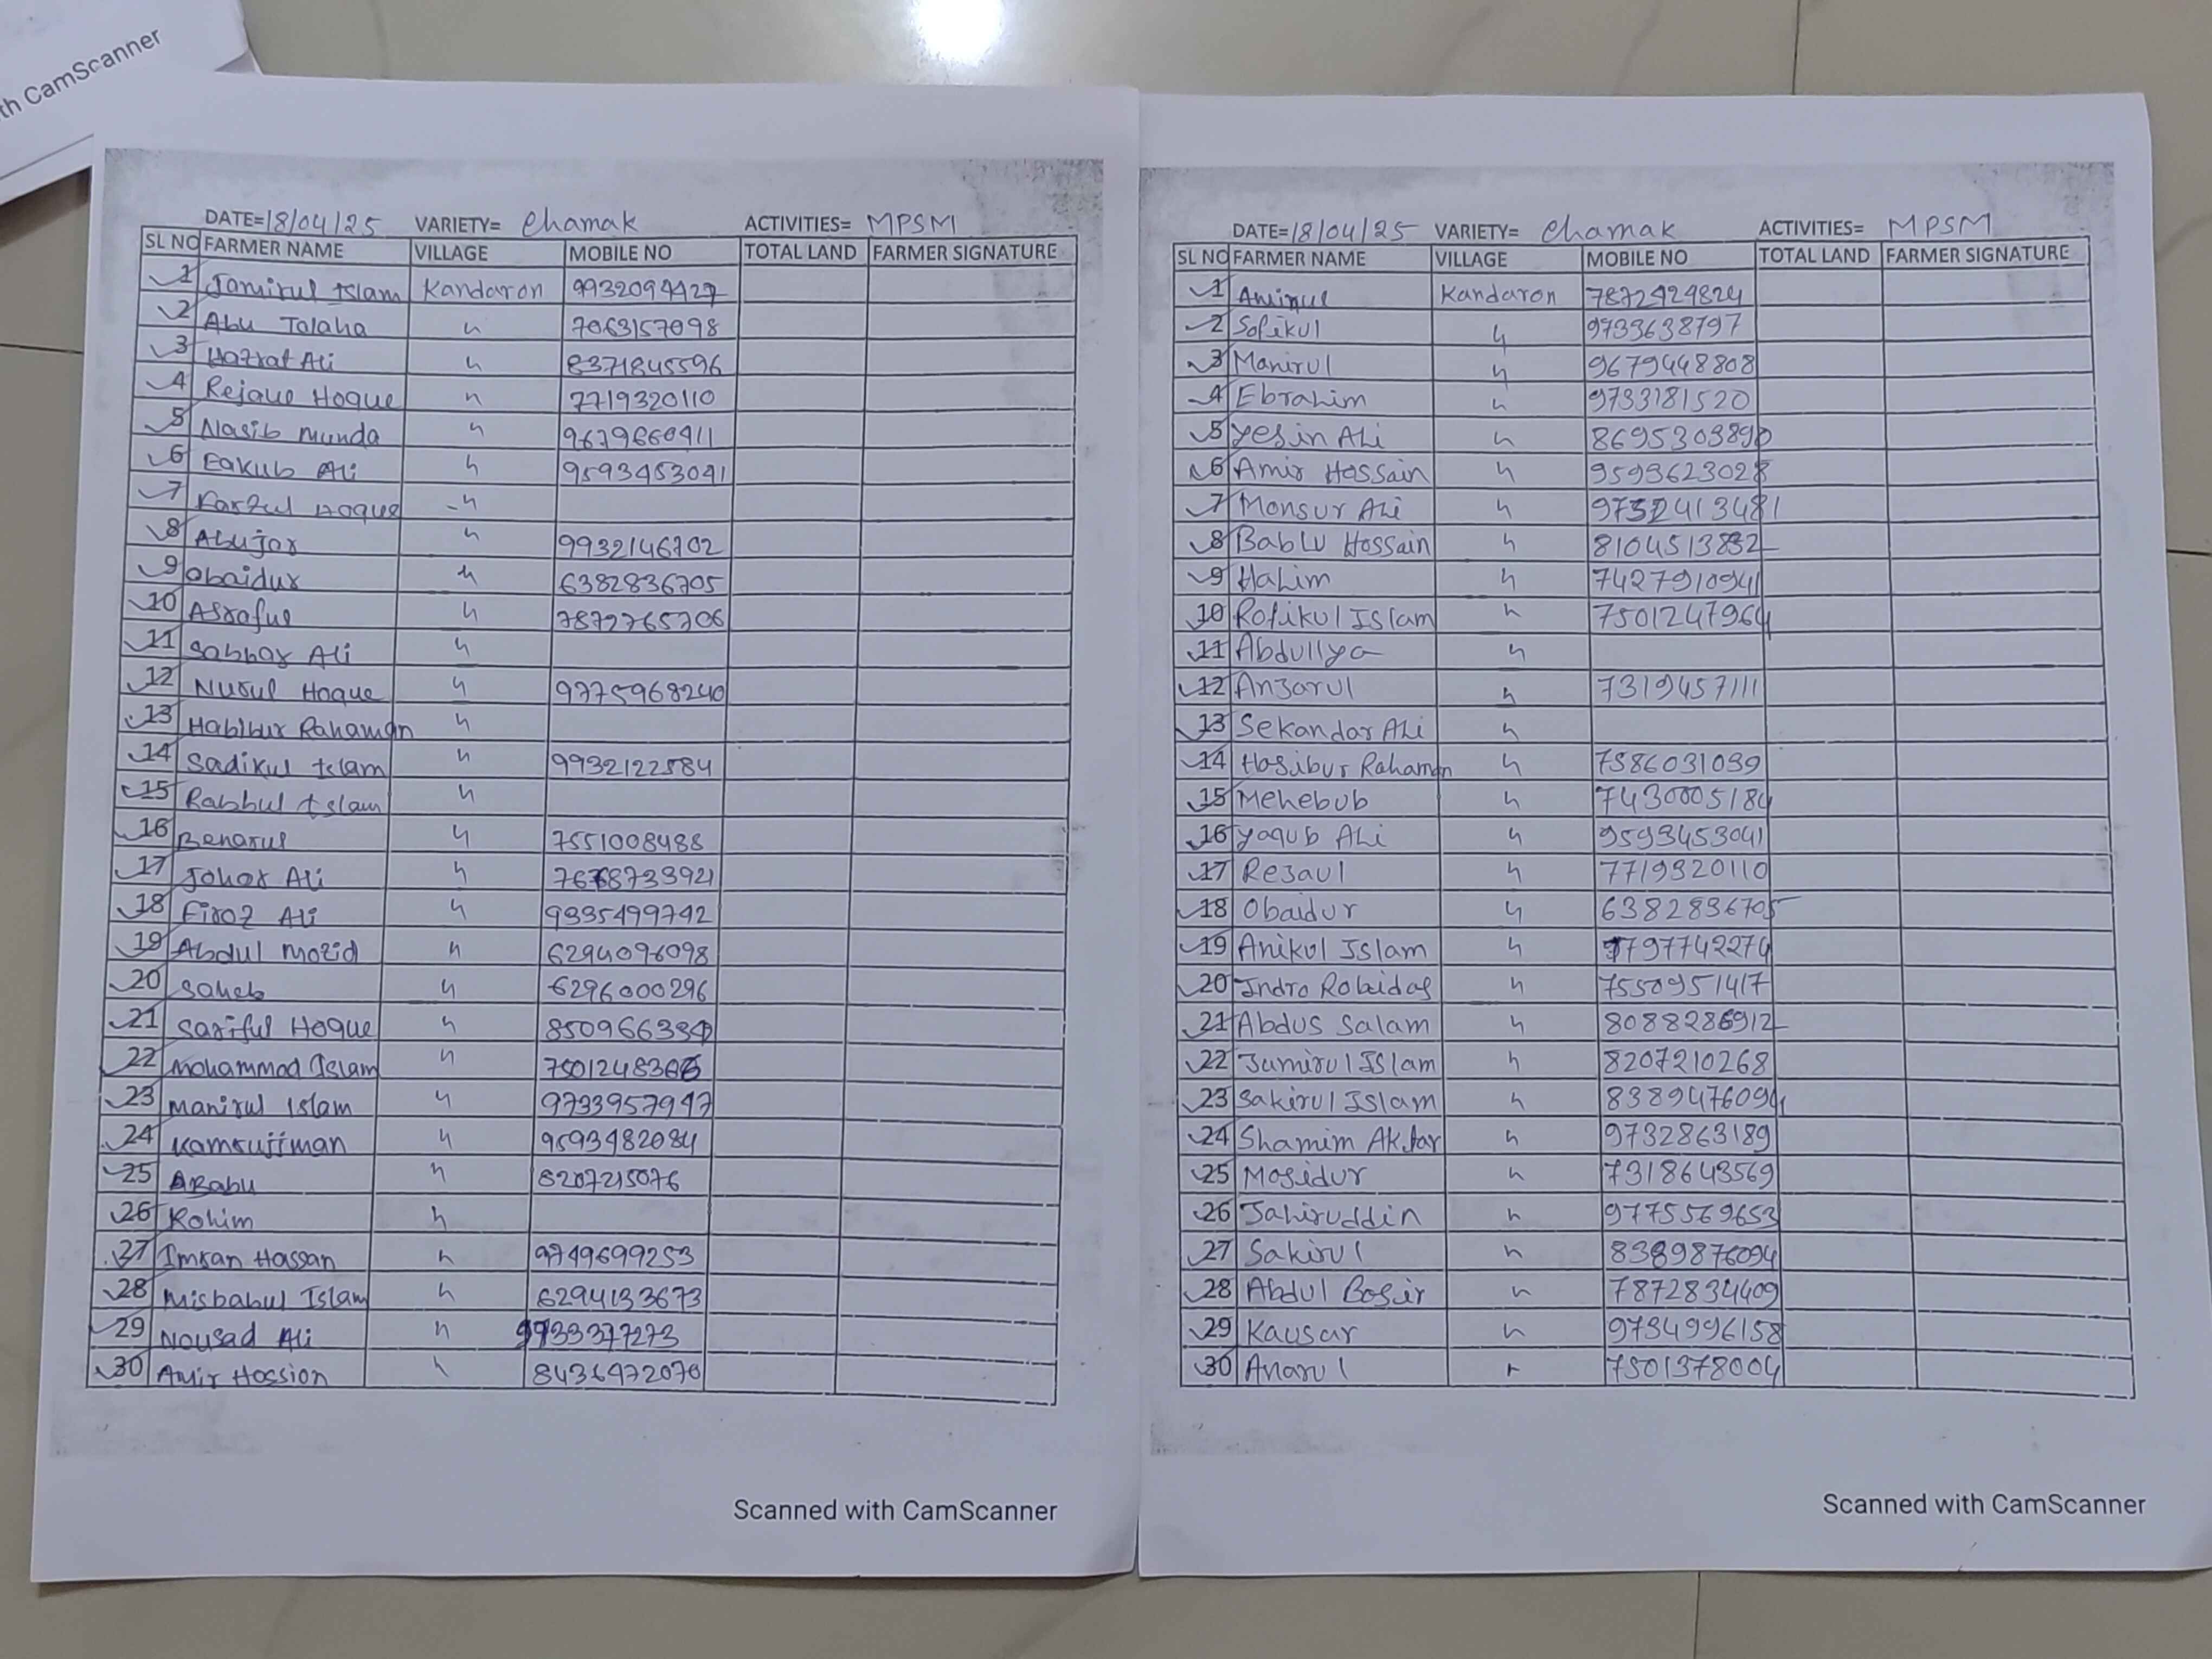 th CamScanner
DATE=18/04/25 VARIETY= Chamak ACTIVITIES= MPSM
SL NO FARMER NAME VILLAGE MOBILE NO TOTAL LAND FARMER SIGNATURE
1 Jamirul Islam Kandaron 9932094427
2 Abu Talaha " 7063157098
3 Hazrat Ali " 8371845596
4 Rejaul Hoque " 7719320110
5 Nasib munda " 9679660411
6 Eakub Ali " 9593453041
7 Farzul Hoque "
8 Abujar " 9932146702
9 Obaidur " 6382836705
10 Asraful " 7872765706
11 Sabbar Ali "
12 Nurul Hoque " 9775968240
13 Habibur Rahaman "
14 Sadikul Islam " 9932122584
15 Rabbul Islam "
16 Benarul " 7551008488
17 Johar Ali " 7668733921
18 Firoz Ali " 9335499742
19 Abdul Mozid " 6294096098
20 Saheb " 6296000296
21 Sariful Hoque "
22 Mohammod Islam "
23 Manirul Islam " 9733957947
24 Kamrujjman " 9593482084
25 ABabu " 8207215076
26 Rohim "
27 Imran Hassan " 9749699253
28 Misbabul Islam " 6294133673
29 Nousad Ali " 9733377273
30 Amir Hossion " 8436472070
Scanned with CamScanner
DATE=18/04/25 VARIETY= Chamak ACTIVITIES= MPSM
SL NO FARMER NAME VILLAGE MOBILE NO TOTAL LAND FARMER SIGNATURE
1 Aminul Kandaron 7872424824
2 Sofikul " 9733638797
3 Manirul " 9679448808
4 Ebrahim " 9733181520
5 Yesin Ali " 8695303890
6 Amir Hossain " 9593623028
7 Monsur Ali " 9732413481
8 Bablu Hossain " 8104513832
9 Halim " 7427910941
10 Rofikul Islam " 7501247964
11 Abdullya "
12 Anzarul " 7319457111
13 Sekandar Ali "
14 Hasibur Rahaman " 7586031039
15 Mehebub " 7430005184
16 Yaqub Ali " 9593453041
17 Rezaul " 7719320110
18 Obaidur " 6382836705
19 Anikul Islam " 7797742274
20 Indro Robidas " 7550951417
21 Abdus Salam " 8088286912
22 Jumirul Islam " 8207210268
23 Sakirul Islam " 8389476094
24 Shamim Aktar " 9732863189
25 Mosidur " 7318643569
26 Jahiruddin " 9775569653
27 Sakirul " 8389876094
28 Abdul Bosir " 7872834409
29 Kausar " 9734996158
30 Anarul " 7501378004
Scanned with CamScanner